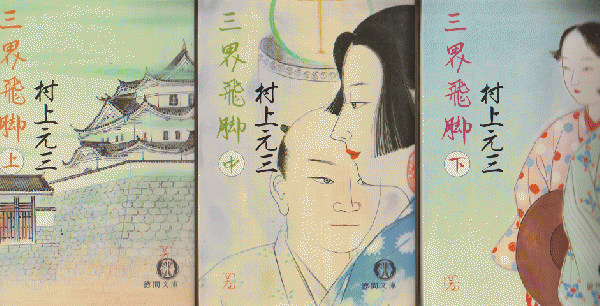 三界飛脚
上
村上元三
徳間文庫
三界飛脚
中
村上元三
徳間文庫
三界飛脚
下
村上元三